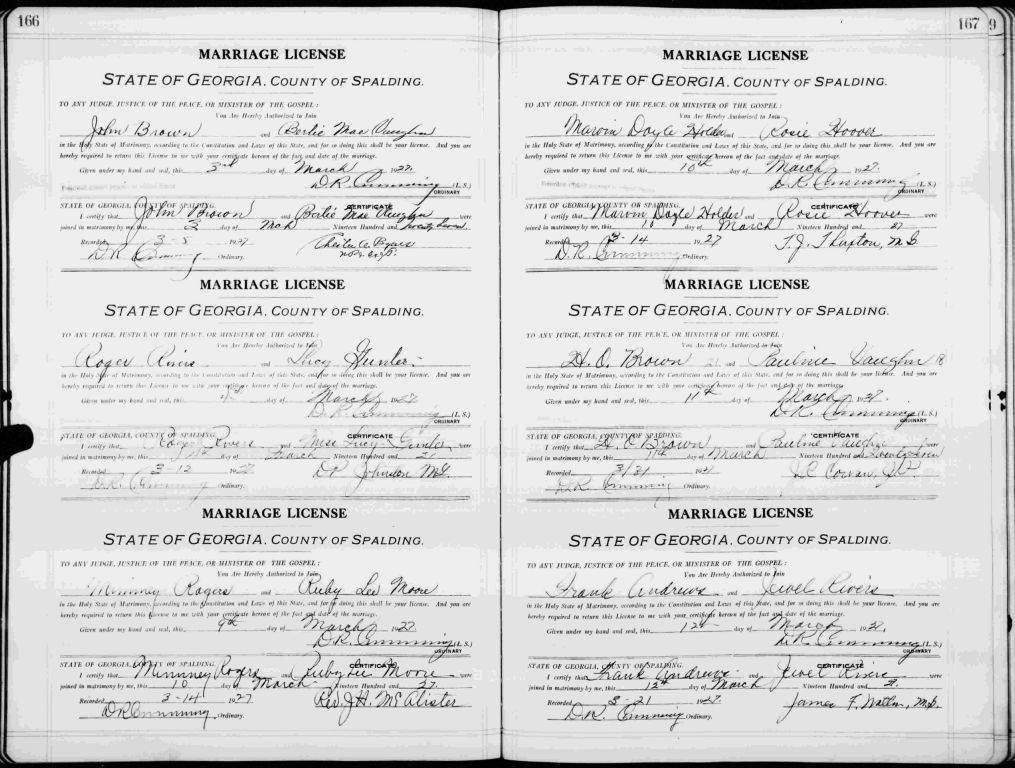 166
MARRIAGE LICENSE
STATE OF GEORGIA, COUNTY OF SPALDING.
TO ANY JUDGE, JUSTICE OF THE PEACE, OR MINISTER OF THE GOSPEL:
You Are Hereby Authorized to Join
John Brown and Bertie Mae Vaughn
in the Holy State of Matrimony, according to the Constitution and Laws of this State, and for so doing this shall be your license. And you are
hereby required to return this License to me with your certificate hereon of the fact and date of the marriage.
Given under my hand and seal, this 3rd day of March 1927.
D.R. Cumming (L. S.)
ORDINARY
CERTIFICATE
STATE OF GEORGIA, COUNTY OF SPALDING.
I certify that John Brown and Bertie Mae Vaughn were
joined in matrimony by me, this 3 day of Mch Nineteen Hundred and twenty seven.
Recorded 3-8 1927
D.R. Cumming Ordinary.
MARRIAGE LICENSE
STATE OF GEORGIA, COUNTY OF SPALDING.
TO ANY JUDGE, JUSTICE OF THE PEACE, OR MINISTER OF THE GOSPEL:
You Are Hereby Authorized to Join
Roger Rivers and Lucy
in the Holy State of Matrimony, according to the Constitution and Laws of this State, and for so doing this shall be your license. And you are
hereby required to return this License to me with your certificate hereon of the fact and date of the marriage.
Given under my hand and seal, this day of March 1927
D.R. Cumming (L. S.)
ORDINARY
CERTIFICATE
STATE OF GEORGIA, COUNTY OF SPALDING.
I certify that Roger Rivers and Miss Lucy were
joined in matrimony by me, this day of March Nineteen Hundred and
Recorded 3-12 1927
D.R. Cumming Ordinary.
Johnson M.G.
MARRIAGE LICENSE
STATE OF GEORGIA, COUNTY OF SPALDING.
TO ANY JUDGE, JUSTICE OF THE PEACE, OR MINISTER OF THE GOSPEL:
You Are Hereby Authorized to Join
Rogers and Ruby Lee Moore
in the Holy State of Matrimony, according to the Constitution and Laws of this State, and for so doing this shall be your license. And you are
hereby required to return this License to me with your certificate hereon of the fact and date of the marriage.
Given under my hand and seal, this 9th day of March 1927
D.R. Cumming (L. S.)
ORDINARY
CERTIFICATE
STATE OF GEORGIA, COUNTY OF SPALDING.
I certify that Rogers and Ruby Lee Moore were
joined in matrimony by me, this 10 day of March Nineteen Hundred and 27.
Recorded 3-14 1927
Rev. J.H. McAlister
D.R. Cumming Ordinary.
167
9
MARRIAGE LICENSE
STATE OF GEORGIA, COUNTY OF SPALDING.
TO ANY JUDGE, JUSTICE OF THE PEACE, OR MINISTER OF THE GOSPEL:
You Are Hereby Authorized to Join
Marvin Doyle Holder and Rosie Hoover
in the Holy State of Matrimony, according to the Constitution and Laws of this State, and for so doing this shall be your license. And you are
hereby required to return this License to me with your certificate hereon of the fact and date of the marriage.
Given under my hand and seal, this 10th day of March 1927.
D.R. Cumming (L. S.)
ORDINARY
CERTIFICATE
STATE OF GEORGIA, COUNTY OR SPALDING
I certify that Marvin Doyle Holder and Rosie Hoover were
joined in matrimony by me, this 10 day of March Nineteen Hundred and 27
Recorded 3-14 1927
D.R. Cumming Ordinary.
MARRIAGE LICENSE
STATE OF GEORGIA, COUNTY OF SPALDING.
TO ANY JUDGE, JUSTICE OF THE PEACE, OR MINISTER OF THE GOSPEL:
You Are Hereby Authorized to Join
H. O. Brown and Pauline Vaughn
in the Holy State of Matrimony, according to the Constitution and Laws of this State, and for so doing this shall be your license. And you are
hereby required to return this License to me with your certificate hereon of the fact and date of the marriage.
Given under my hand and seal, this 11th day of March
D.R. Cumming (L. S.)
ORDINARY
CERTIFICATE
STATE OF GEORGIA, COUNTY OF SPALDING.
I certify that Brown and Pauline Vaughn were
joined in matrimony by me, this 11th day of March Nineteen Hundred and
Recorded 3/21
J.C. Cowan, J.P.
D.R. Cumming Ordinary.
MARRIAGE LICENSE
STATE OF GEORGIA, COUNTY OF SPALDING.
TO ANY JUDGE, JUSTICE OF THE PEACE, OR MINISTER OF THE GOSPEL:
You Are Hereby Authorized to Join
Frank Andrews and Jewel Rivers
in the Holy State of Matrimony, according to the Constitution and Laws of this State, and for so doing this shall be your license. And you are
hereby required to return this License to me with your certificate hereon of the fact and date of the marriage.
Given under my hand and seal, this 12 day of March
D.R. Cumming (L. S.)
ORDINARY
CERTIFICATE
STATE OF GEORGIA, COUNTY OF SPALDING.
I certify that Frank Andrews and Jewel Rivers were
joined in matrimony by me, this 12th day of March Nineteen Hundred and
Recorded 3-21 1927.
James F.
D.R. Cumming Ordinary.